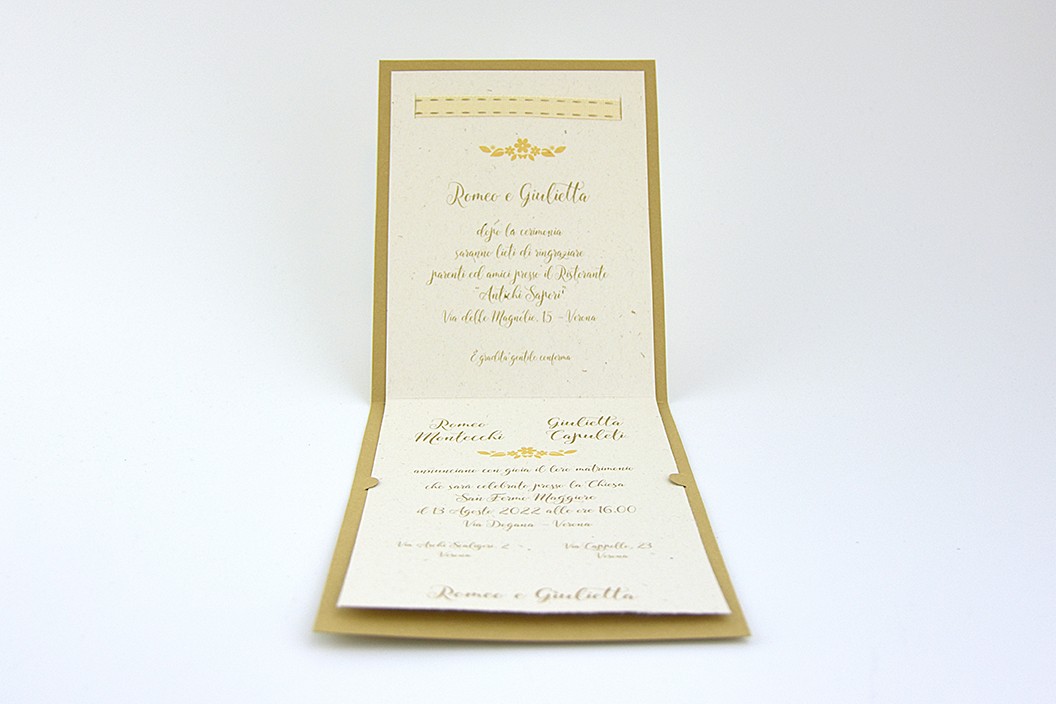 Romeo e Giulietta
dopo la cerimonia
saranno lieti di ringraziare
parenti ed amici presso il Ristorante
"Antichi Sapori"
Via delle Magnolie, 15 - Verona
È gradita gentile conferma
Romeo Giulietta
Montecchi Capuleti
annunciano con gioia il loro matrimonio
che sarà celebrato presso la Chiesa
San Fermo Maggiore
il 13 Agosto 2022 alle ore 16.00
Via Dogana - Verona
Via Arche Scaligere, 2 Via Cappello, 23
Verona Verona
Romeo e Giulietta